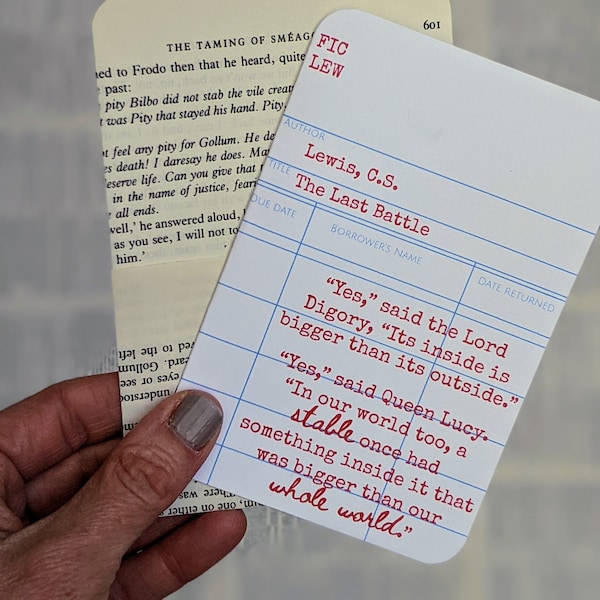 601
THE TAMING OF SMÉAG
ed to Frodo then that he heard, quite
past:
pity Bilbo did not stab the vile creat
t was Pity that stayed his hand. Pity,
t feel any pity for Gollum. He de
es death! I daresay he does. Ma
eserve life. Can you give that
in the name of justice, fear
all ends.
well,' he answered aloud,
as you see, I will not to
him.'
ved to the left
zard. Gollum
eyes or see
There was
either on
FIC
LEW
AUTHOR
Lewis, C.S.
TITLE
The Last Battle
DUE DATE
BORROWER'S NAME
DATE RETURNED
“Yes,” said the Lord
Digory, “Its inside is
bigger than its outside.”
“Yes,” said Queen Lucy.
“In our world too, a
stable once had
something inside it that
was bigger than our
whole world.”